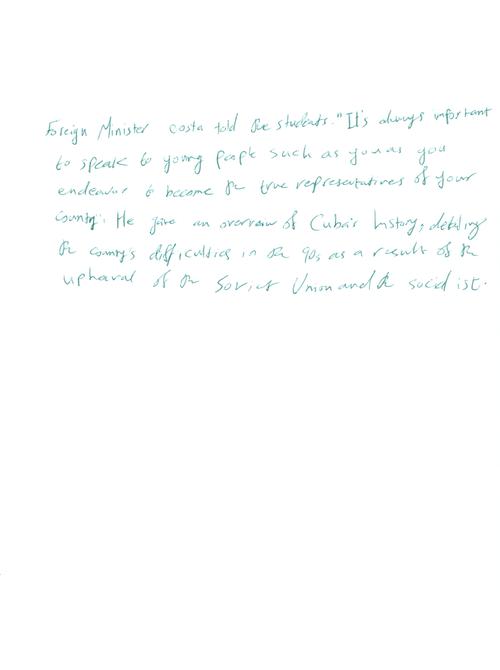 Foreign Minister costa told the students. "It's always important
to speak to young people such as you as you
endeavor to become the true representatives of your
country". He gave an overview of Cuba's history, detailing
the country's difficulties in the 90s as a result of the
upheaval of the Soviet Union and the socialist.